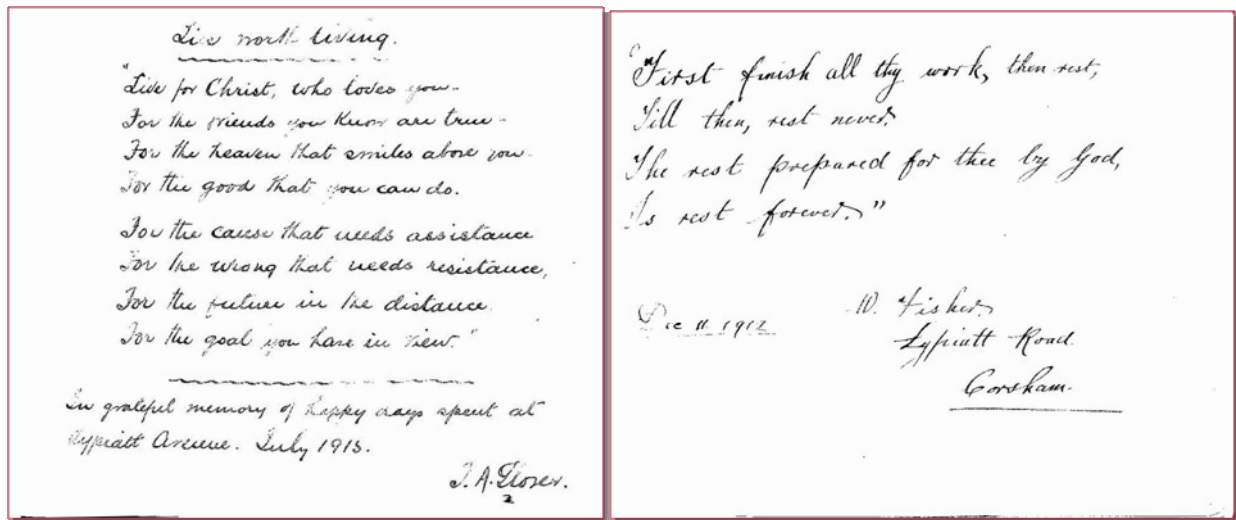 Live worth living.
"Live for Christ, who loves you -
For the friends you know are true -
For the heaven that smiles above you -
For the good that you can do.
For the cause that needs assistance
For the wrong that needs resistance,
For the future in the distance.
For the goal you have in view."
In grateful memory of happy days spent at
Lypiatt Avenue. July 1913.
T. A. Glover.
2
"First finish all thy work, then rest,
Till then, rest never.
The rest prepared for thee by God,
Is rest forever."
Dec 11 1912
W. Fisher.
Lypiatt Road.
Corsham.